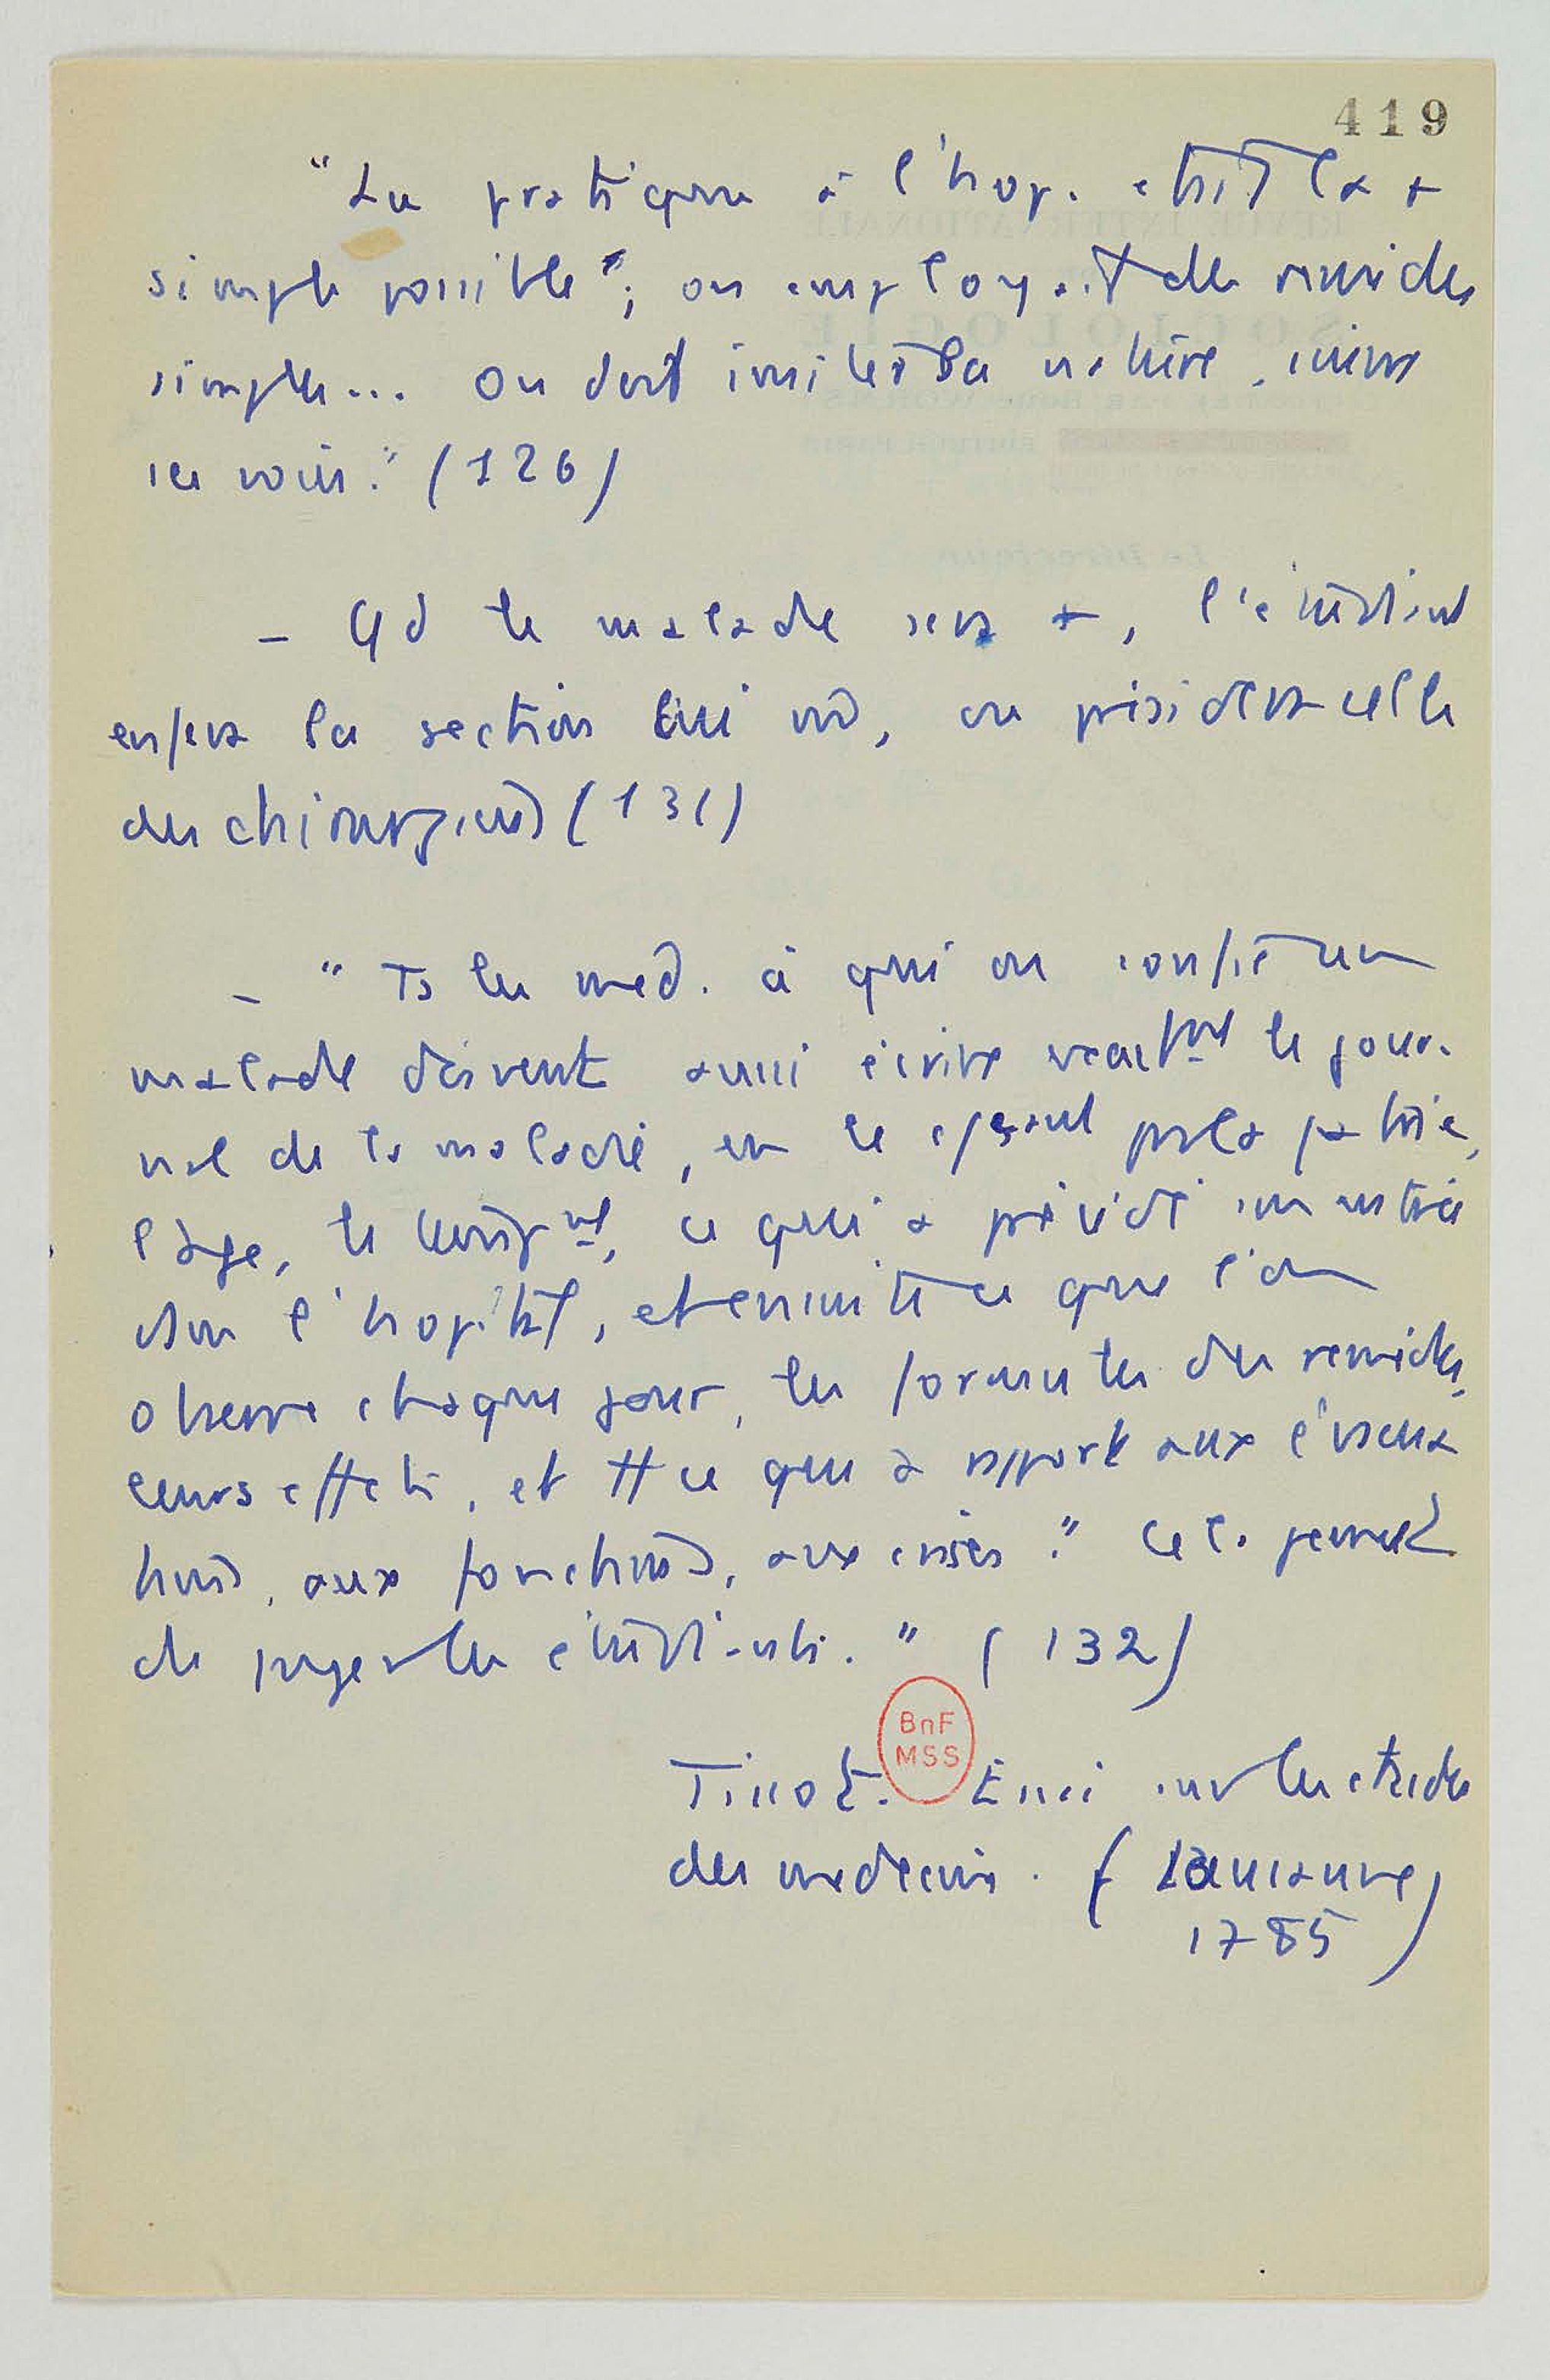 419
"La pratique à l'hop. était la +
simple possible"; on employait des remèdes
simples... on doit imiter la nature, suivre
ses voies." (126)
- Qd le malade sera +, l'étudiant
en fera la section lui m̂, on présidera celle
des chirurgiens (131)
- "Ts les med. à qui on confie un
malade doivent aussi écrire exactmt le jour-
nal de la maladie, en le
l'âge, le tempmt, ce qui a précédé son entrée
dans l'hôpital, et ensuite ce que l'on
observe chaque jour, les formules des remèdes,
leurs effets, et tt ce qui a rapport aux évacua
tions, aux fonctions, aux crises." Cela permet
de juger les étudiants." (132)
BnF
MSS
Tissot. Essai sur les études
des medecins. (Lausanne,
1785)